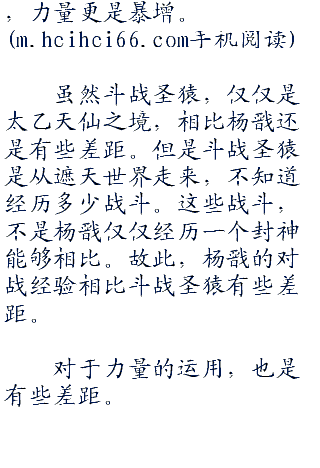 ，力量更是暴增。
(m.hcihci66.com手机阅读)
虽然斗战圣猿，仅仅是
太乙天仙之境，相比杨戬还
是有些差距。但是斗战圣猿
是从遮天世界走来，不知道
经历多少战斗。这些战斗，
不是杨戬仅仅经历一个封神
能够相比。故此，杨戬的对
战经验相比斗战圣猿有些差
距。
对于力量的运用，也是
有些差距。